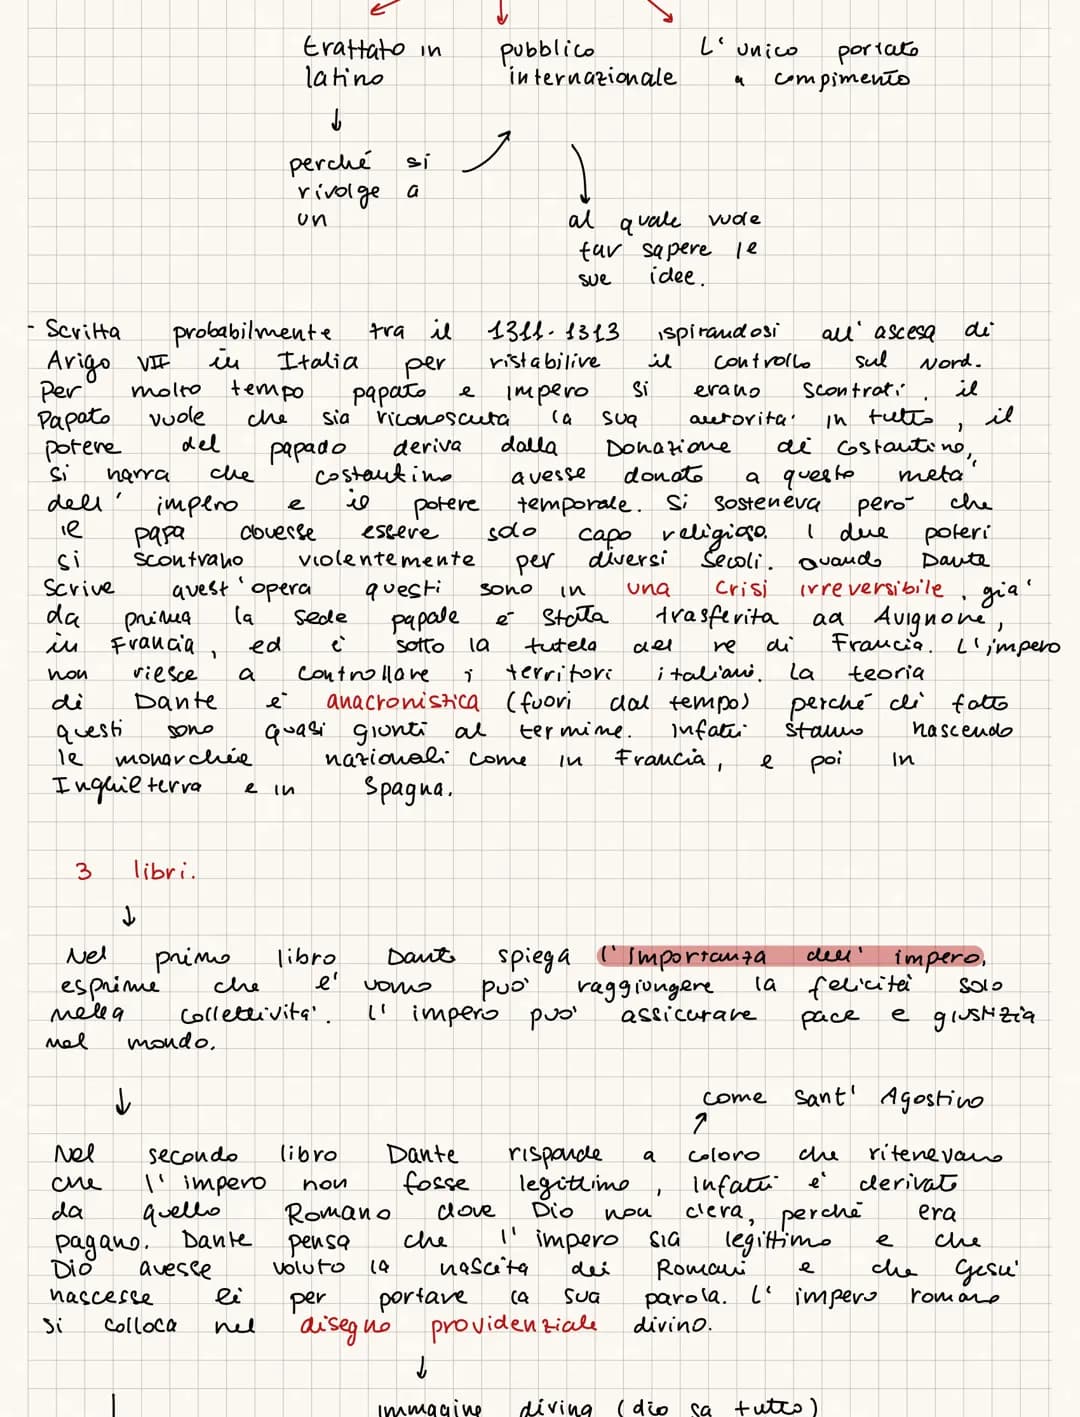 trattato in pubblico L'unico portato
latino internazionale a compimento
perché si
rivolge a
un
al quale vuole
far sapere le
sue idee.
- Scritta probabilmente tra il 1311-1313 ispirandosi all'ascesa di
Arigo VII in Italia per ristabilire il controllo sul Nord.
Per molto tempo papato e impero si erano scontrati, il
Papato vuole che sia riconosciuta la sua autorità in tutto, il
potere del papado deriva dalla Donazione di Costantino,
si narra che costantino avesse donato a questo metà
dell' impero e il potere temporale. Si sosteneva però che
il papa dovesse essere solo capo religioso. I due poteri
si scontrano violentemente per diversi secoli. Quando Dante
scrive quest'opera questi sono in una crisi irreversibile, già
da prima la sede papale è stata trasferita ad Avignone,
in Francia, ed è sotto la tutela del re di Francia. L'impero
non riesce a controllare i territori italiani. La teoria
di Dante è anacronistica (fuori dal tempo) perché di fatto
questi sono quasi giunti al termine. Infatti stanno nascendo
le monarchie nazionali come in Francia, e poi in
Inghilterra e in Spagna.
3 libri.
Nel primo libro Dante spiega l'importanza dell' impero,
esprime che l'uomo può raggiungere la felicità solo
nella collettività. L'impero può assicurare pace e giustizia
nel mondo.
come Sant' Agostino
Nel secondo libro Dante risponde a coloro che ritenevano
che l'impero non fosse legittimo, infatti è derivato
da quello Romano dove Dio non c'era, perché era
pagano. Dante pensa che l'impero sia legittimo e che
Dio avesse voluto la nascita dei Romani e che Gesù
nascesse lì per portare la sua parola. L'impero romano
si colloca nel disegno providenziale divino.
immagine divina (dio sa tutto)